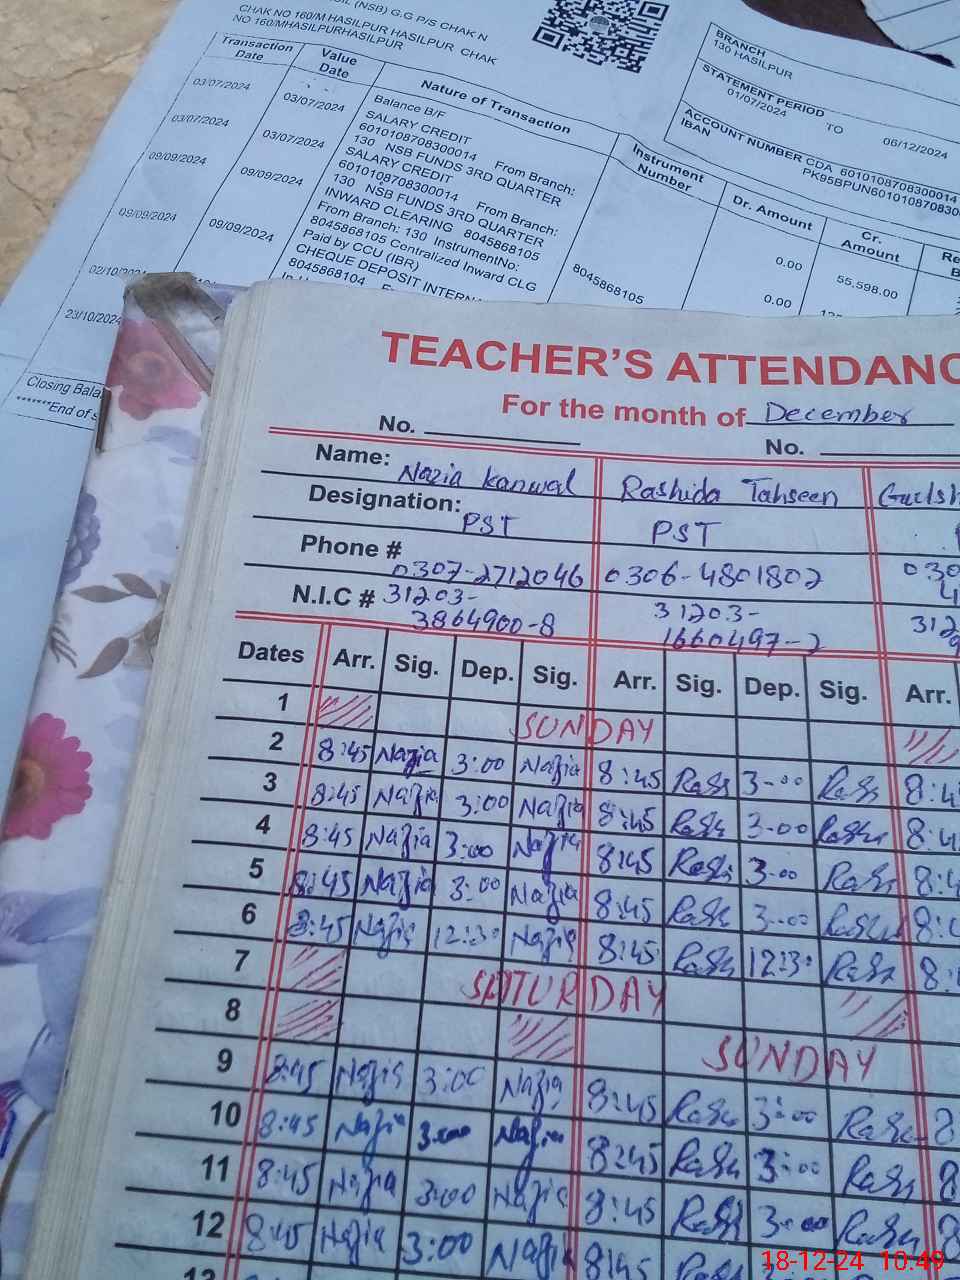 (NSB) G.G P/S CHAK N
CHAK NO 160/M HASILPUR HASILPUR CHAK
NO 160/MHASILPURHASILPUR
BRANCH
130 HASILPUR
STATEMENT PERIOD
01/07/2024 TO 06/12/2024
ACCOUNT NUMBER CDA 6010108708300014
IBAN PK95BPUN6010108708300
Transaction Date Value Date Nature of Transaction Instrument Number Dr. Amount Cr. Amount
03/07/2024 03/07/2024 Balance B/F
03/07/2024 03/07/2024 SALARY CREDIT
6010108708300014 From Branch:
130 NSB FUNDS 3RD QUARTER
09/09/2024 09/09/2024 SALARY CREDIT
6010108708300014 From Branch:
130 NSB FUNDS 3RD QUARTER
09/09/2024 09/09/2024 INWARD CLEARING 8045868105
From Branch: 130 InstrumentNo:
8045868105 Centralized Inward CLG
Paid by CCU (IBR)
CHEQUE DEPOSIT INTERN
8045868104
8045868105
0.00 55,598.00
0.00
23/10/2024
Closing Bala
*******End of s
TEACHER'S ATTENDANC
For the month of December
No. No.
Name: Nazia Kanwal Rashida Tahseen Gulsh
Designation: PST PST
Phone # 0307-2712046 0306-4801802 030
N.I.C # 31203- 31203- 312
3864900-8 1660497-2
Dates Arr. Sig. Dep. Sig. Arr. Sig. Dep. Sig. Arr.
1 SUNDAY
2 8:45 Nazia 3:00 Nazia 8:45 Rash 3-00 Rash 8:4
3 8:45 Nazia 3:00 Nazia 8:45 Rash 3-00 Rash 8:4
4 8:45 Nazia 3:00 Nazia 8:45 Rash 3-00 Rash 8:4
5 8:45 Nazia 3:00 Nazia 8:45 Rash 3-00 Rash 8:
6 8:45 Nazia 12:30 Nazia 8:45 Rash 12:30 Rash 8:
7 SATURDAY
8 SUNDAY
9 8:45 Nazia 3:00 Nazia 8:45 Rash 3:00 Rash 8
10 8:45 Nazia 3:00 Nazia 8:45 Rash 3:00 Rash 8
11 8:45 Nazia 3:00 Nazia 8:45 Rash 3:00 Rash 8
12 8:45 Nazia 3:00 Nazia 8:45
13
18-12-24 10:49